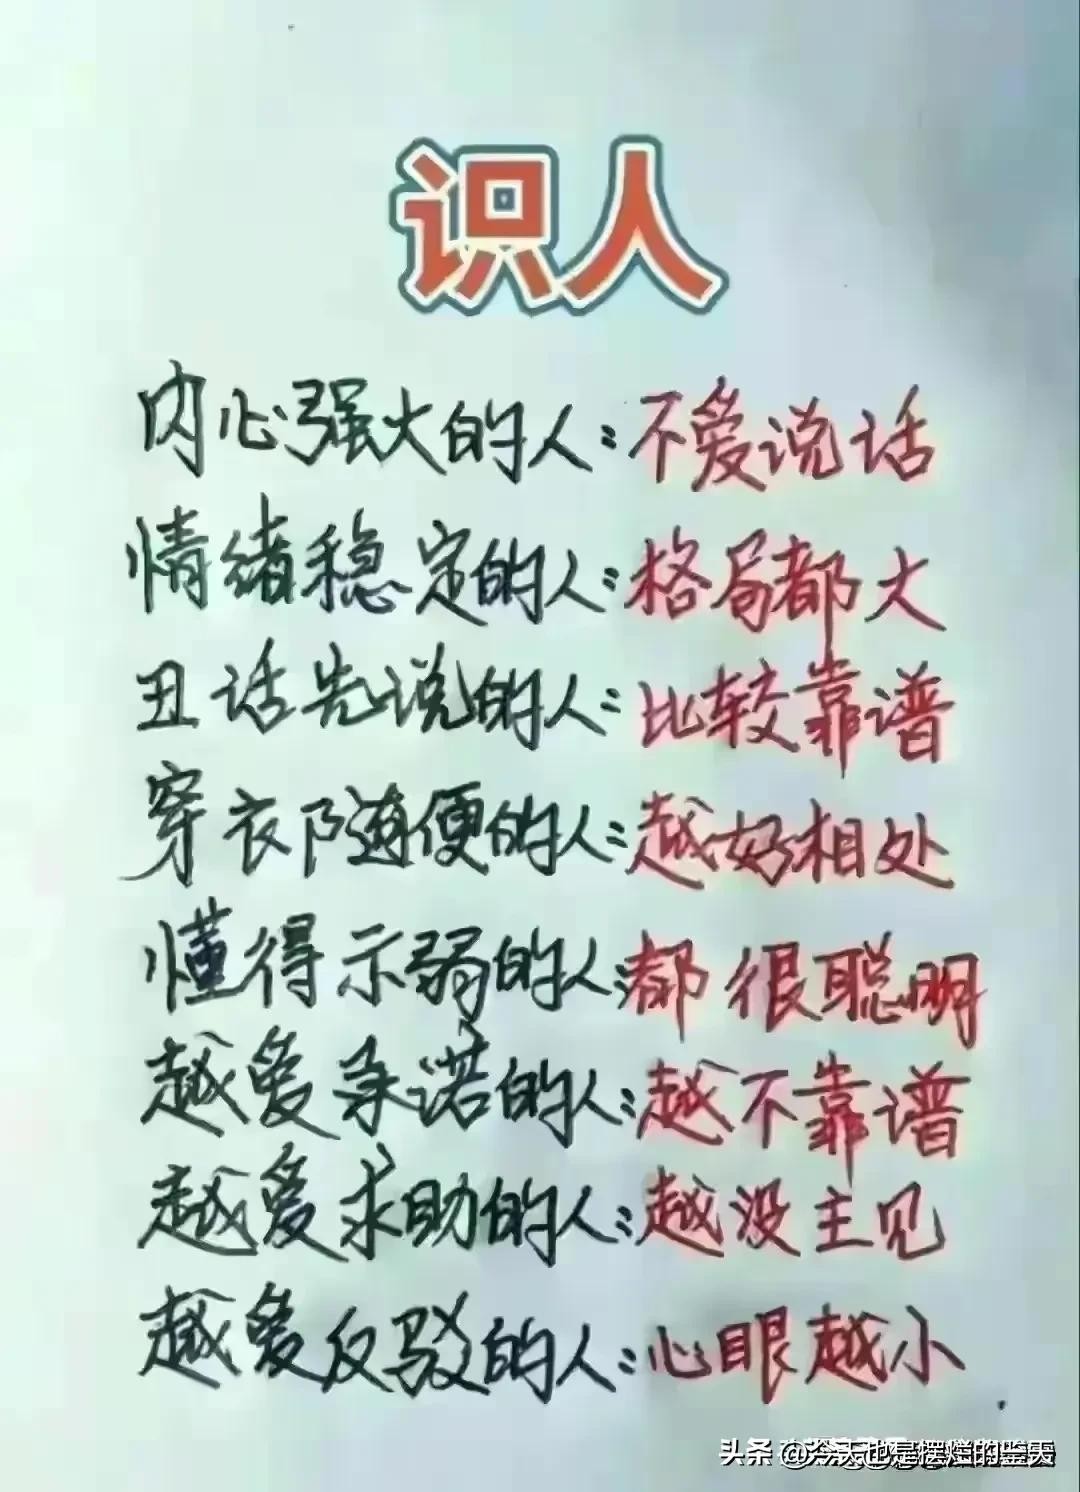 识人
内心强大的人:不爱说话
情绪稳定的人:格局都大
丑话先说的人:比较靠谱
穿衣随便的人:越好相处
懂得示弱的人:都很聪明
越爱承诺的人:越不靠谱
越爱求助的人:越没主见
越爱反驳的人:心眼越小
头条 @今天也是摆烂的鉴天